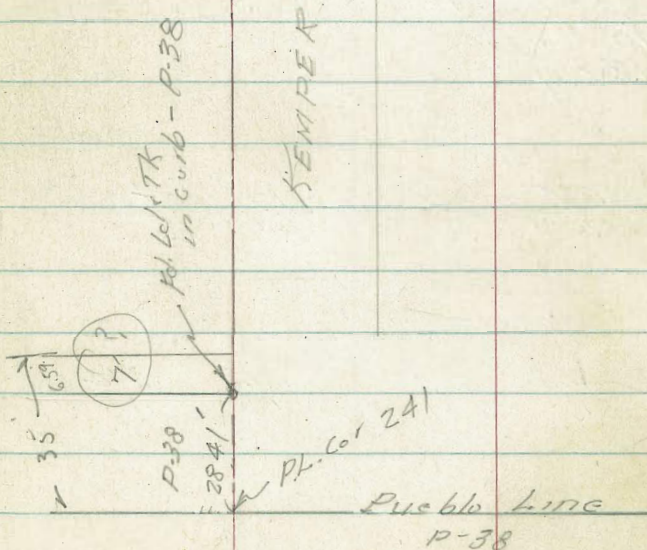 Fd. Ld & TK
in Curb - P-38
KEMPER
7'?
6.59
35'
P-38
28.41'
P.L. Cor 241
Pueblo Line
P-38